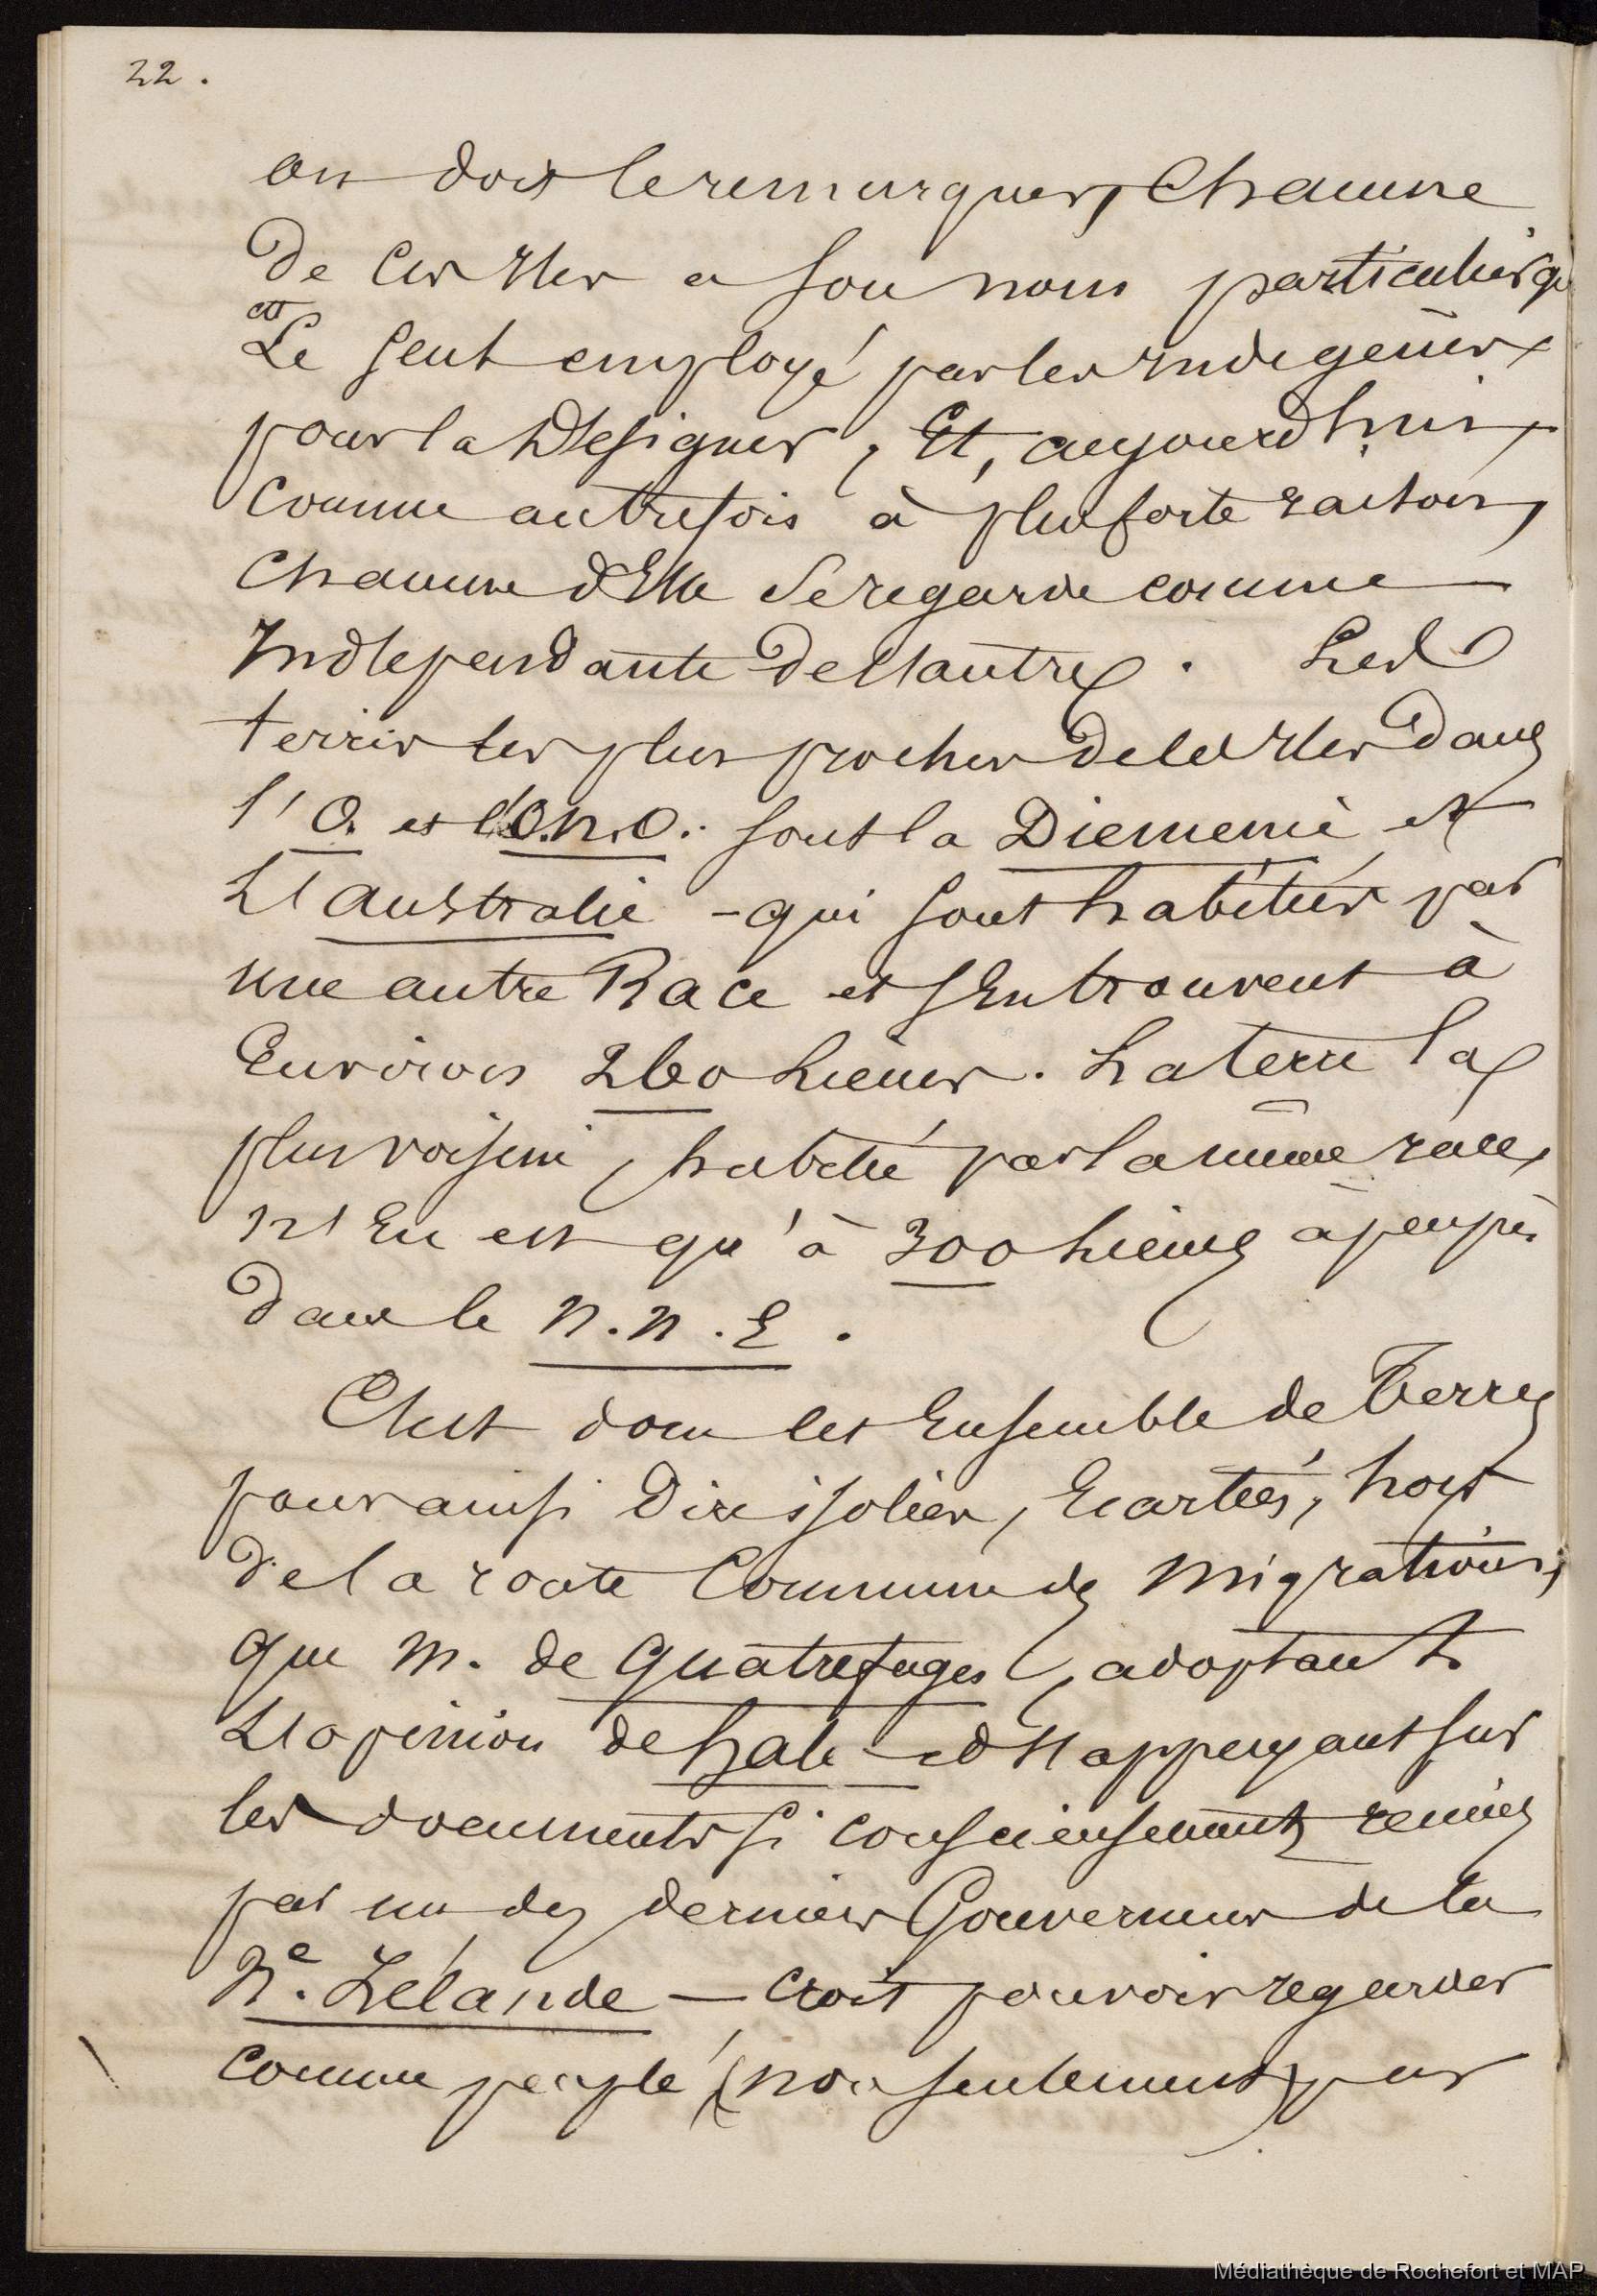 22.
on doit le remarquer, Chacune
De Ces Iles a son nom particulier qui
est
Le seul employé par les Indigènes
pour la Désigner, Et, aujourd'hui,
Comme autrefois à plus forte raison,
Chacune d'Elle Se regarde comme
Indépendante de l'autre. Les
terres les plus proches de ces Iles Dans
l'O. et l'O.N.O. sont la Diemenie et
L'Australie - qui sont habitées par
une autre Race et s'En trouvent à
Environ 260 Lieues. La terre la
plus voisine, habitée par la même race,
N'En est qu'à 300 Lieues à peu près
Dans le N.N.E.
C'est donc cet Ensemble de Terres
pour ainsi Dire isolées, Ecartées, hors
De la route Commune des Migrations,
que M. de Quatrefages, adoptant
L'opinion de Hale et s'appuyant sur
les documents si consciensement réunies
par un des derniers Gouverneurs de la
Nᵉ. Zélande — Croit pouvoir regarder
Comme peuplé (non seulement) par
Médiathèque de Rochefort et MAP